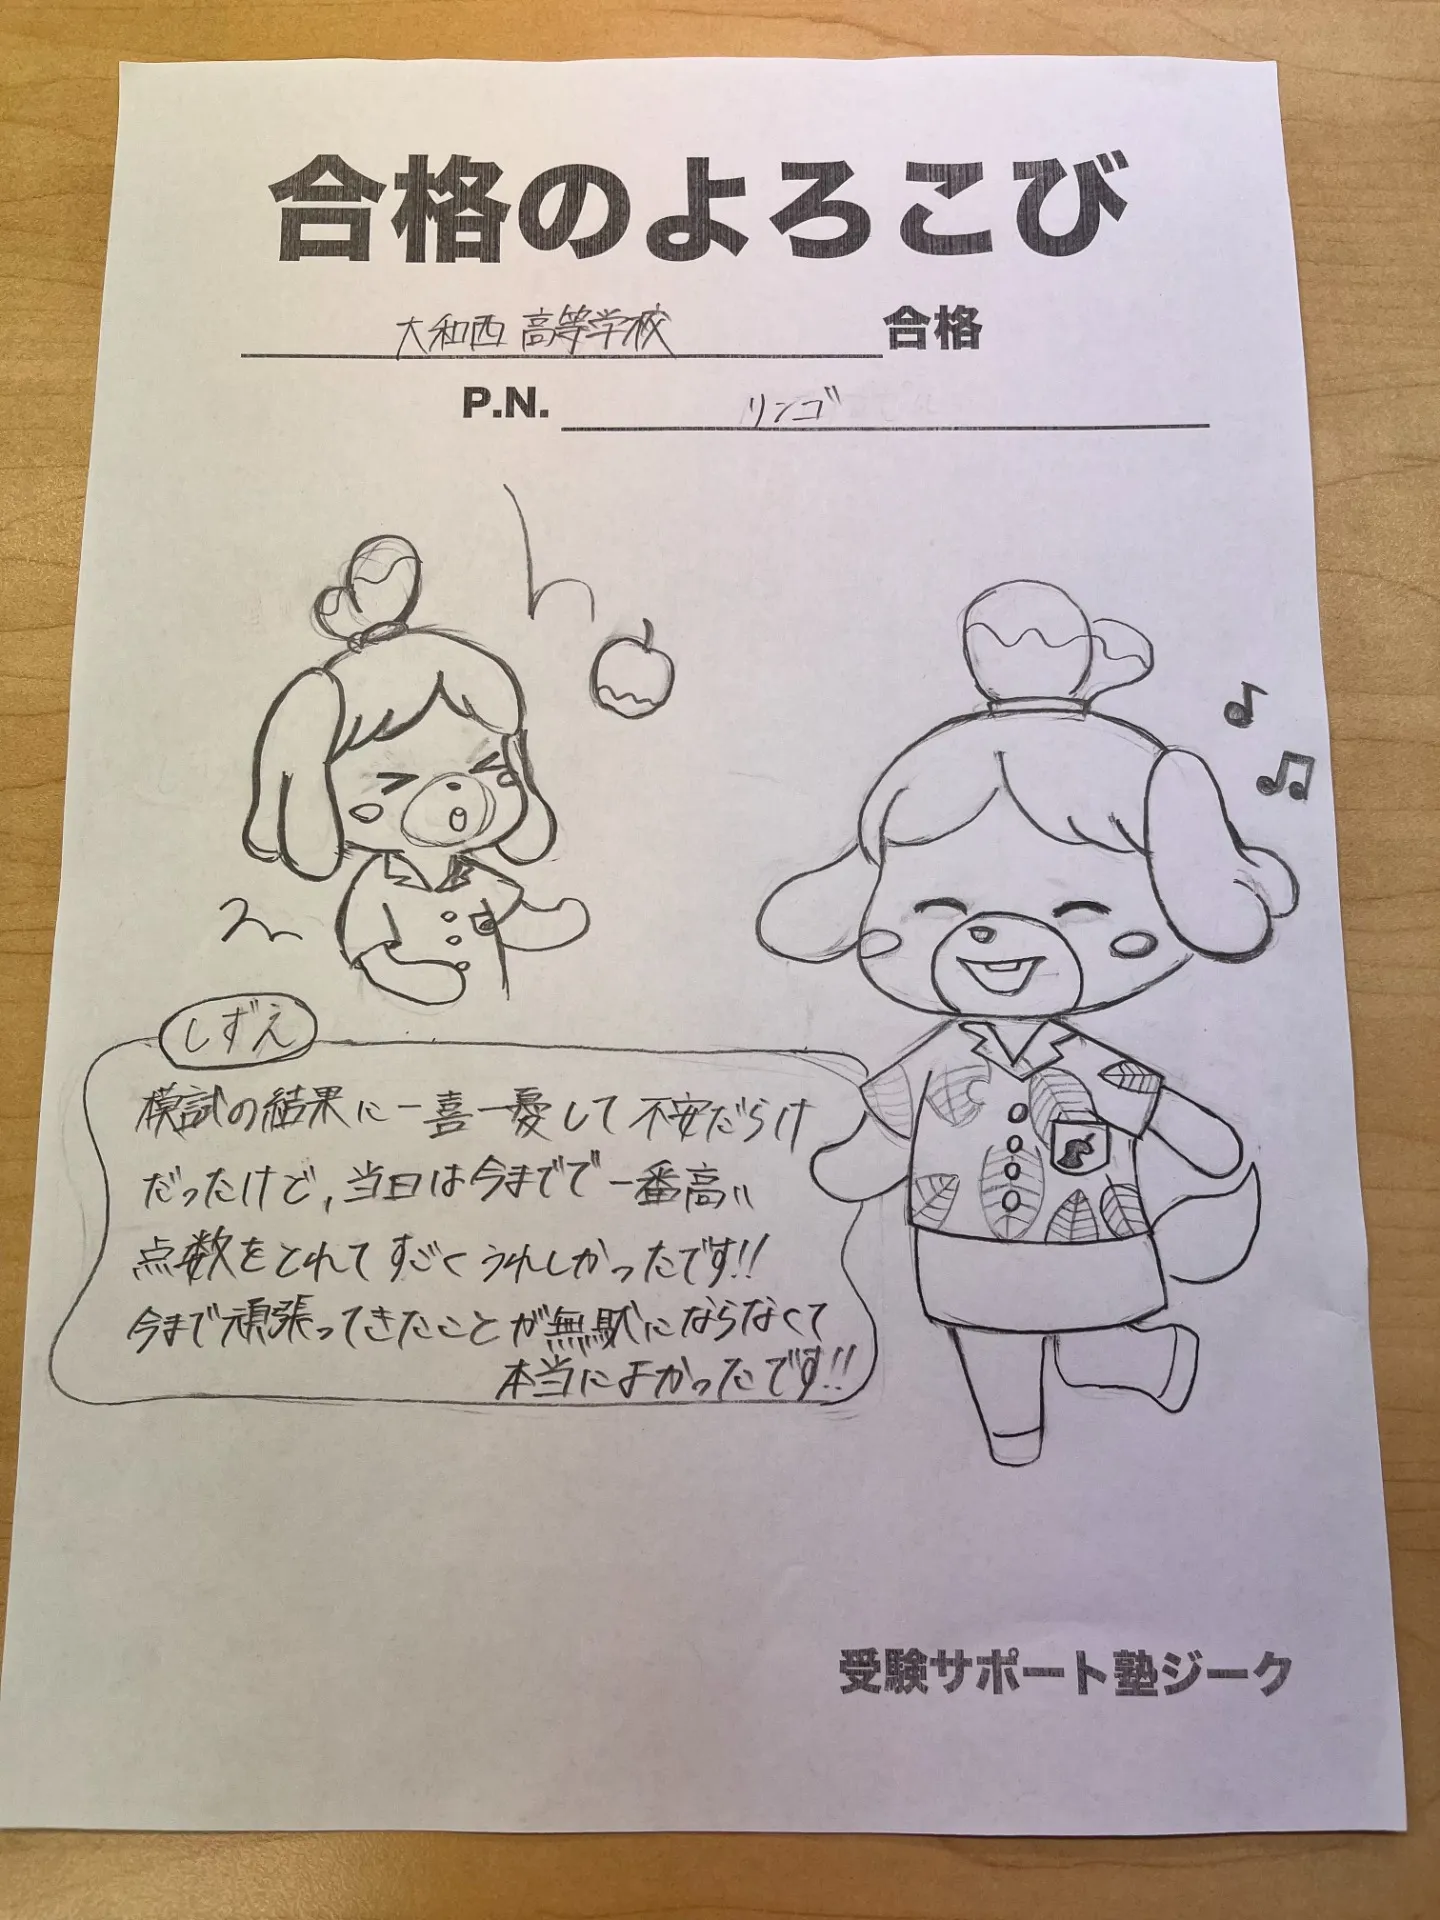 合格のよろこび
大和西高等学校 合格
P.N. リンゴ
しずえ
模試の結果に一喜一憂して不安だらけ
だったけど,当日は今までで一番高い
点数をとれてすごくうれしかったです!!
今まで頑張ってきたことが無駄にならなくて
本当によかったです!!
受験サポート塾ジーク